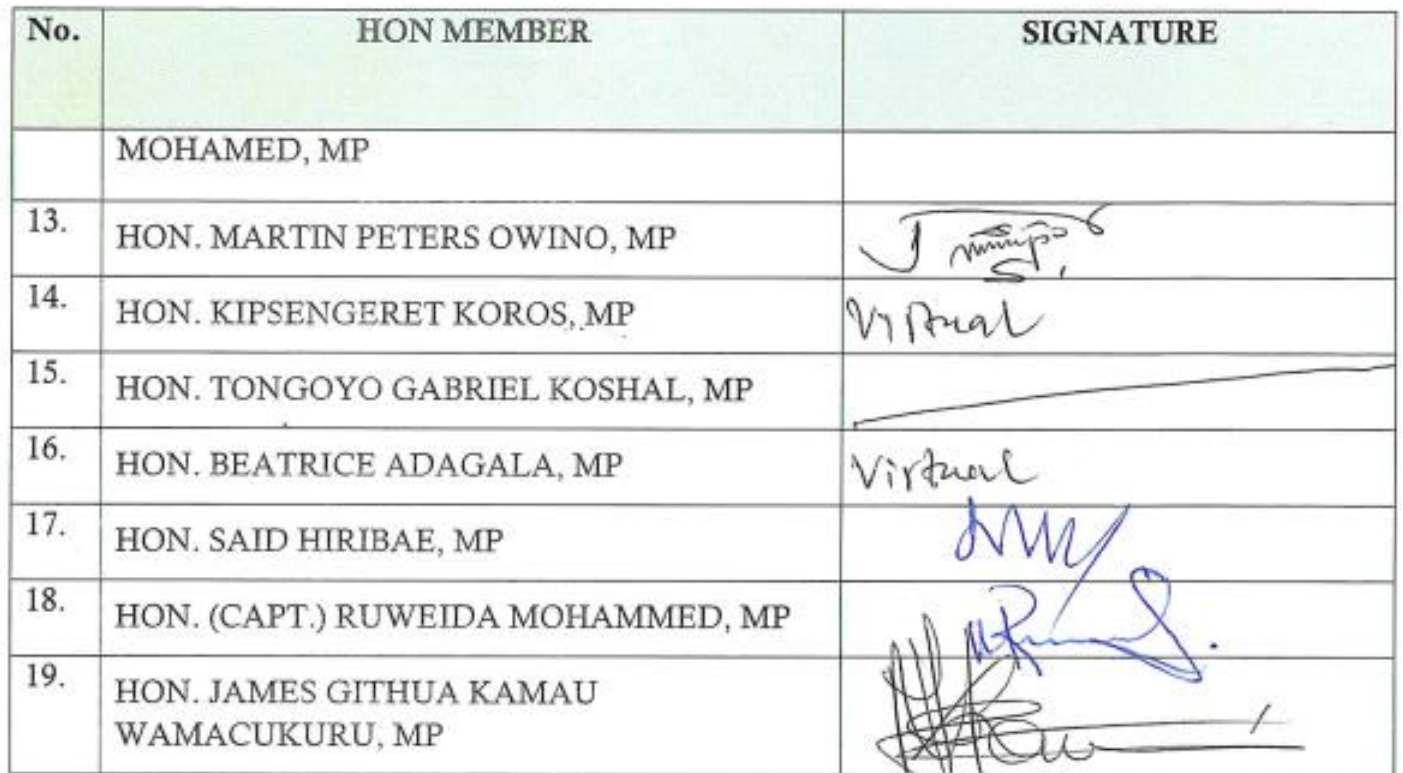 No. HON MEMBER SIGNATURE
MOHAMED, MP
13. HON. MARTIN PETERS OWINO, MP
14. HON. KIPSENGERET KOROS, MP Virtual
15. HON. TONGOYO GABRIEL KOSHAL, MP
16. HON. BEATRICE ADAGALA, MP Virtual
17. HON. SAID HIRIBAE, MP
18. HON. (CAPT.) RUWEIDA MOHAMMED, MP
19. HON. JAMES GITHUA KAMAU
WAMACUKURU, MP